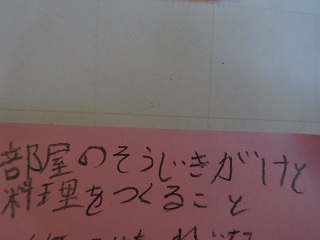 部屋のそうじきがけと
料理をつくること